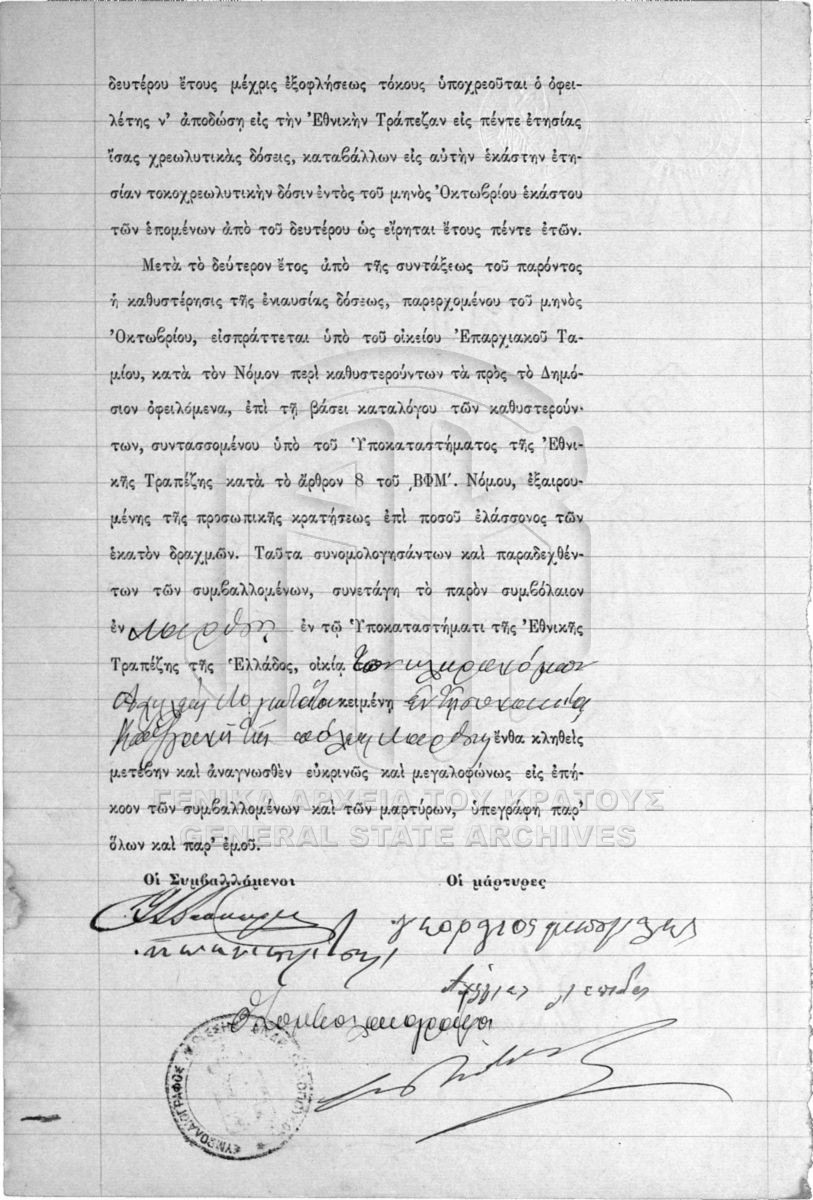 δευτέρου ἔτους μέχρις ἐξοφλήσεως τόκους ὑποχρεοῦται ὁ ὀφει-
λέτης ν' ἀποδώσῃ εἰς τὴν Ἐθνικὴν Τράπεζαν εἰς πέντε ἐτησίας
ἴσας χρεωλυτικὰς δόσεις, καταβάλλων εἰς αὐτὴν ἑκάστην ἐτη-
σίαν τοκοχρεωλυτικὴν δόσιν ἐντὸς τοῦ μηνὸς Ὀκτωβρίου ἑκάστου
τῶν ἑπομένων ἀπὸ τοῦ δευτέρου ὡς εἴρηται ἔτους πέντε ἐτῶν.
Μετὰ τὸ δεύτερον ἔτος ἀπὸ τῆς συντάξεως τοῦ παρόντος
ἡ καθυστέρησις τῆς ἐνιαυσίας δόσεως, παρερχομένου τοῦ μηνὸς
Ὀκτωβρίου, εἰσπράττεται ὑπὸ τοῦ οἰκείου Ἐπαρχιακοῦ Τα-
μίου, κατὰ τὸν Νόμον περὶ καθυστερούντων τὰ πρὸς τὸ Δημό-
σιον ὀφειλόμενα, ἐπὶ τῇ βάσει καταλόγου τῶν καθυστερούν-
των, συντασσομένου ὑπὸ τοῦ Ὑποκαταστήματος τῆς Ἐθνι-
κῆς Τραπέζης κατὰ τὸ ἄρθρον 8 τοῦ ͵ΒΦΜ'. Νόμου, ἐξαιρου-
μένης τῆς προσωπικῆς κρατήσεως ἐπὶ ποσοῦ ἐλάσσονος τῶν
ἑκατὸν δραχμῶν. Ταῦτα συνομολογησάντων καὶ παραδεχθέν-
των τῶν συμβαλλομένων, συνετάγη τὸ παρὸν συμβόλαιον
ἐν ἐν τῷ Ὑποκαταστήματι τῆς Ἐθνικῆς
Τραπέζης τῆς Ἑλλάδος, οἰκίᾳ τῶν κληρονόμων
κειμένῃ ἐν τῇ συνοικίᾳ
τῆς πόλεως ἔνθα κληθεὶς
μετέβην καὶ ἀναγνωσθὲν εὐκρινῶς καὶ μεγαλοφώνως εἰς ἐπή-
κοον τῶν συμβαλλομένων καὶ τῶν μαρτύρων, ὑπεγράφη παρ'
ὅλων καὶ παρ' ἐμοῦ.
ΓΕΝΙΚΑ ΑΡΧΕΙΑ ΤΟΥ ΚΡΑΤΟΥΣ
GENERAL STATE ARCHIVES
Οἱ Συμβαλλόμενοι Οἱ μάρτυρες
γεοργιος
Ὁ Συμβολαιογράφος
ΣΥΜΒΟΛΑΙΟΓΡΑΦΟΣ